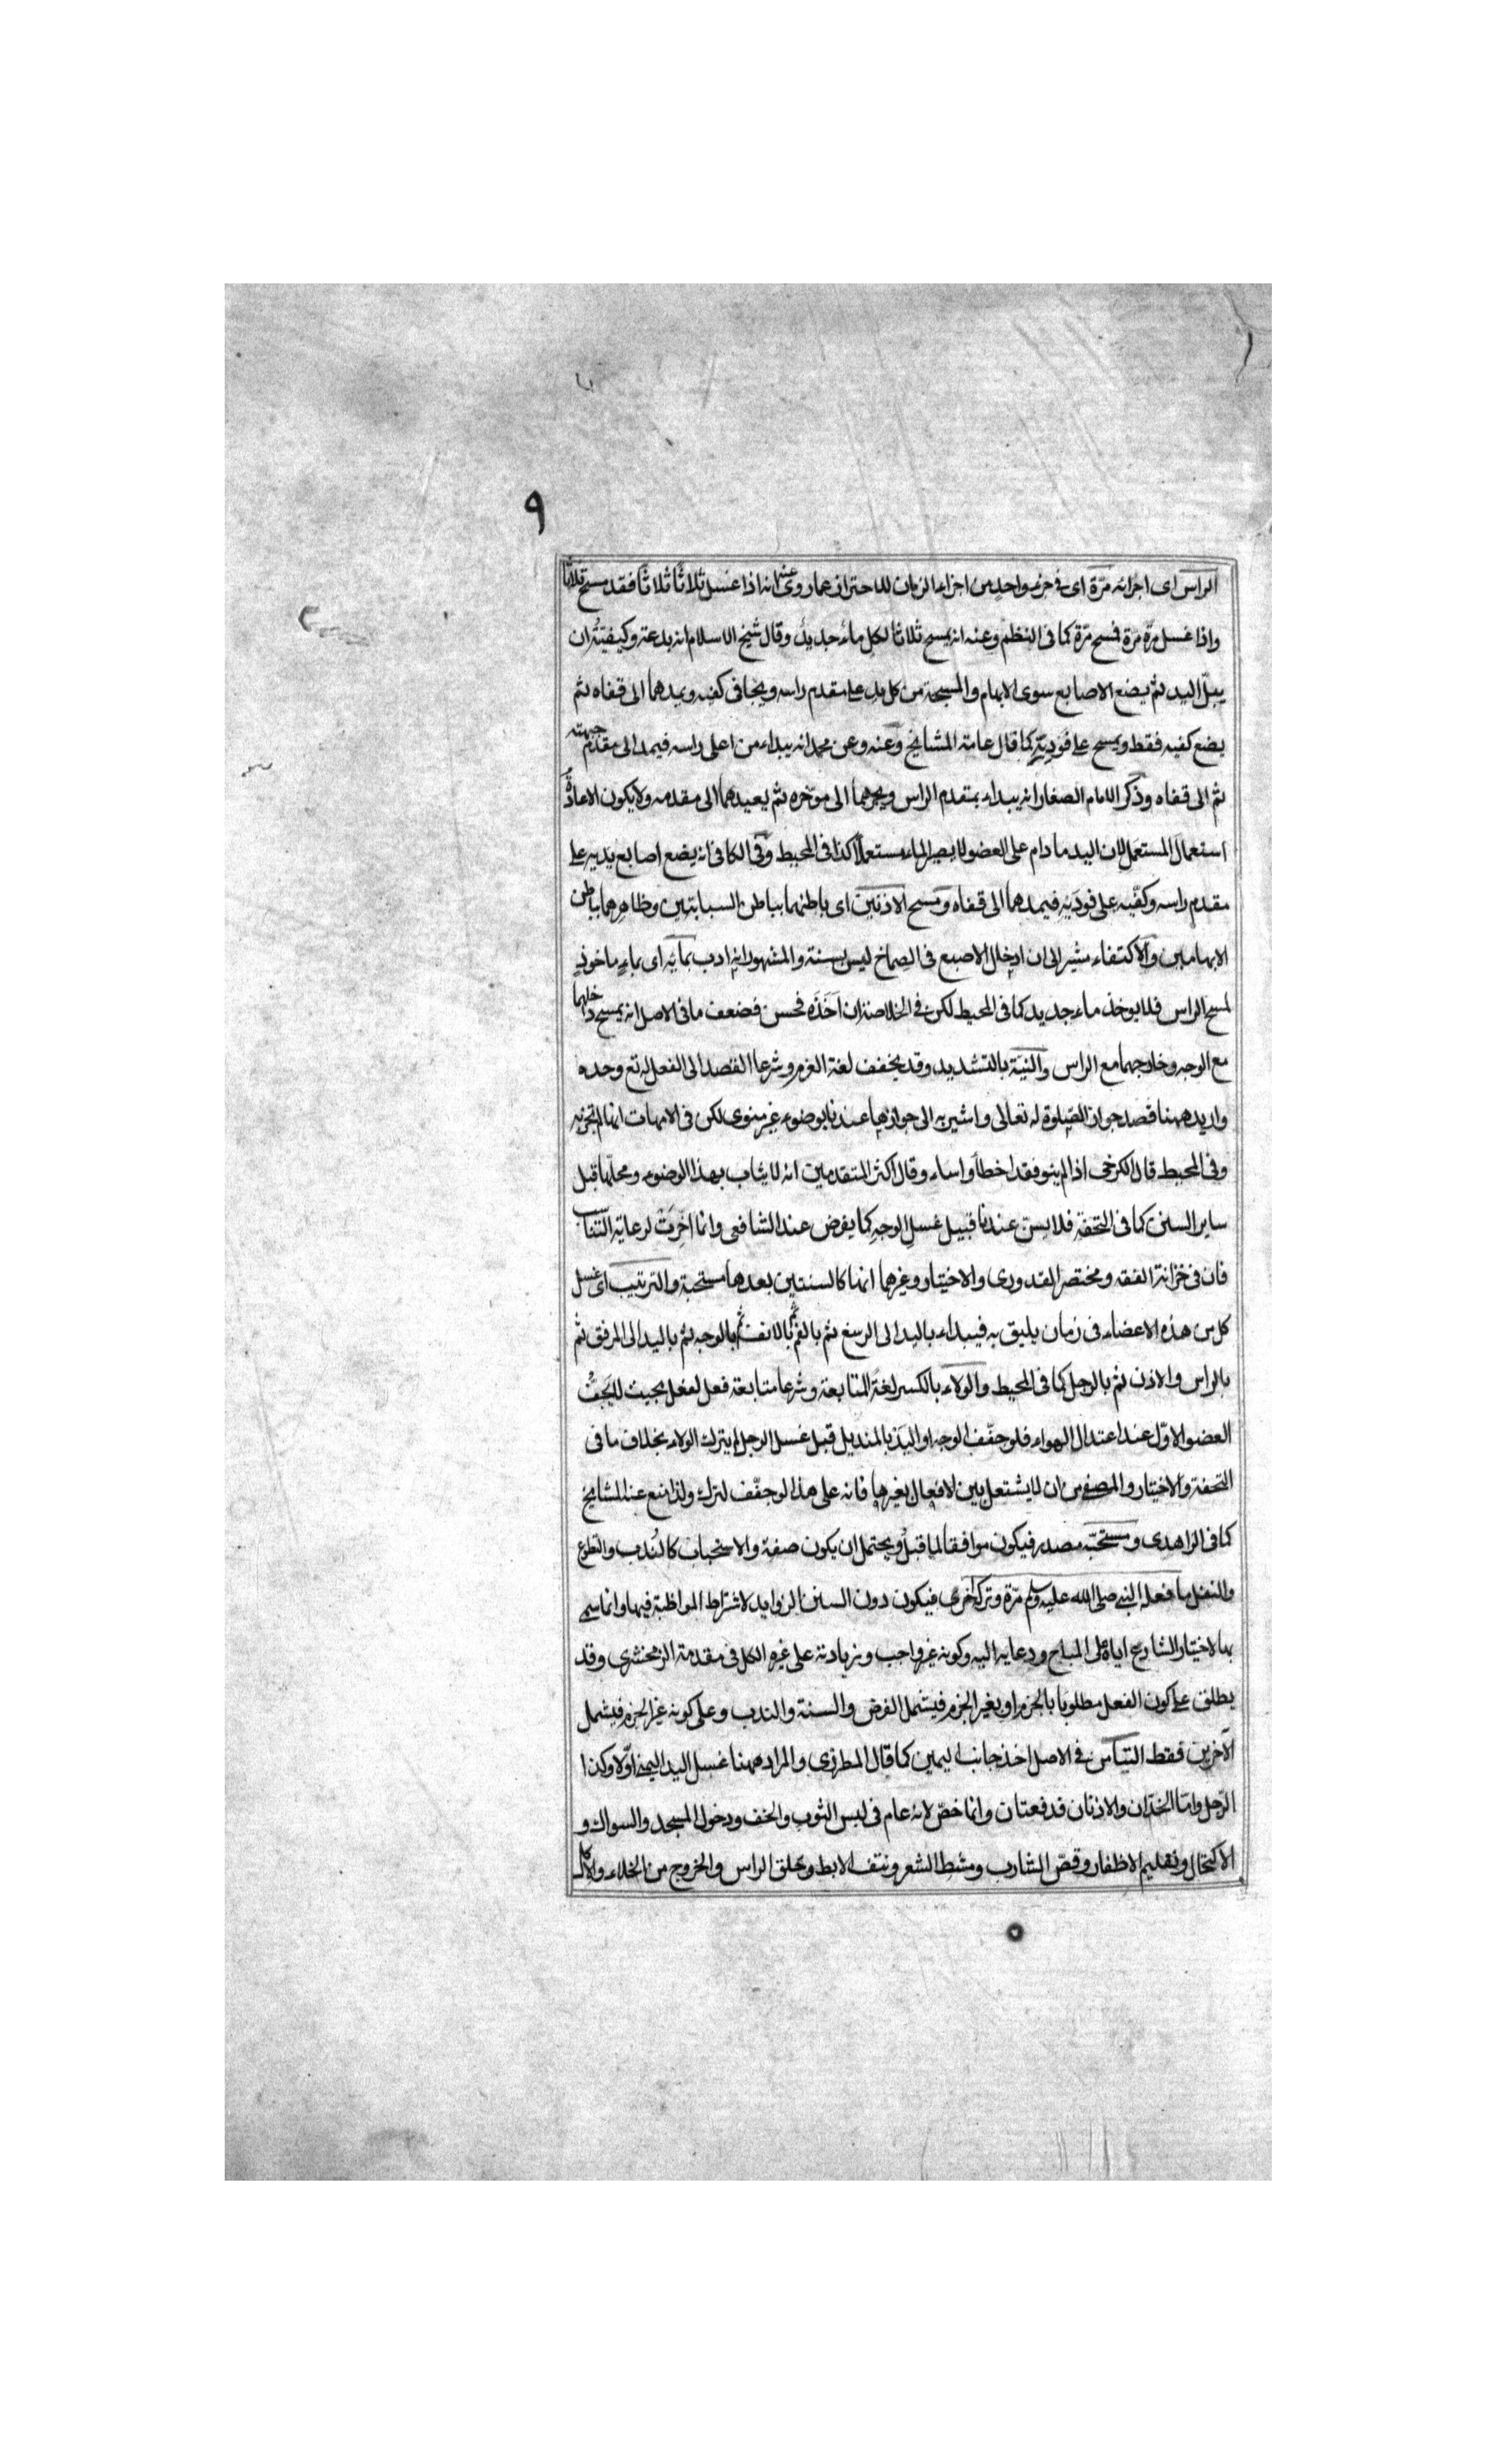 ٩
الراس اى اجزائه مرّة اى فى جزء واحد من اجزاء الزمان للاحتراز عما روى عنه انه اذا غسل ثلاثا ثلاثا فقد مسح ثلاثا
واذا غسل مرّة مرّة فمسح مرّة كما فى النظم وعنه انه يمسح ثلاثا لكل ماء جديد وقال شيخ الاسلام انه بدعة وكيفيّته ان
يبلّ اليد ثم يضع الاصابع سوى الابهام والمسبحة من كل يد على مقدم راسه ويجافى كفيه ويمدهما الى قفاه ثم
يضع كفيه فقط ويمسح على فوديه كما قال عامة المشايخ وعنه وعن محمد انه يبداء من اعلى راسه فيمد الى مقدم جبهته
ثم الى قفاه وذكر الامام الصفار انه يبداء بمقدم الراس ويجرهما الى موخره ثم يعيدهما الى مقدمه ولا يكون الاعادة
استعمال المستعمل لان اليد ما دام على العضو لا يصير الماء مستعملا كذا فى المحيط وفى الكافى انه يضع اصابع يديه على
مقدم راسه وكفّيه على فوديه فيمدهما الى قفاه ومسح الاذنين اى باطنهما بباطن السبابتين وظاهرهما بباطن
الابهامين والاكتفاء مشير الى ان ادخال الاصبع فى الصماخ ليس بسنة والمشهور انه ادب بمائه اى بماء ماخوذ
لمسح الراس فلا يوخذ ماء جديد كما فى المحيط لكن فى الخلاصة ان اخذه فحسن فضعف ما فى الاصل انه يمسح داخلهما
مع الوجه وخارجهما مع الراس والنيّة بالتشديد وقد يخفف لغة العزم وشرعا القصد الى الفعل له تع وحده
واريد ههنا قصد جواز الصّلوة له تعالى واشير به الى جوازها عندنا بوضوء غير منوى لكن فى الامهات انها لم تجزيه
وفى المحيط قال الكرخى اذا لم ينو فقد اخطأ واساء وقال اكثر المتقدمين انه لا يثاب بهذا الوضوء ومحلّها قبل
ساير السنن كما فى التحفة فلا يسن عندنا قبيل غسل الوجه كما يفرض عند الشافعى وانما اخرت لرعاية التناسب
فان فى خزانة الفقه ومختصر القدورى والاختيار وغيرهما انها كالسنتين بعدها مستحبة والترتيب اى غسل
كل من هذه الاعضاء فى زمان يليق به فيبداء باليد الى الرسغ ثم بالفم ثم بالانف ثم بالوجه ثم باليد الى المرفق ثم
بالراس والاذن ثم بالرجل كما فى المحيط والولاء بالكسر لغة المتابعة وشرعا متابعة فعل لفعل بحيث لا يجف
العضو الاوّل عند اعتدال الهواء فلو جفّف الوجه او اليد بالمنديل قبل غسل الرجل لم يترك الولاء بخلاف ما فى
التحفة والاختيار والمصفى من ان لا يشتغل بين الافعال بغيرها فانه على هذا لو جفّف لترك ولذا منع عنه المشايخ
كما فى الزاهدى ومستحبّه مصدر فيكون موافقا لما قبل ويحتمل ان يكون صفة والاستحباب كالندب والتطوع
والنفل ما فعله النبى صلى الله عليه وسلم مرّة وترك اخرى فيكون دون السنن الزوايد لاشتراط المواظبة فيها وانما سمى
بها لاختيار الشارع اياه على المباح ودعايه اليه وكونه غير واجب وزيادة على غيره الكل فى مقدمة الزمخشرى وقد
يطلق على كون الفعل مطلوبا بالجزم او بغير الجزم فيشمل الفرض والسنة والندب وعلى كونه غير الجزم فيشمل
الآخرين فقط التيامن فى الاصل اخذ جانب اليمين كما قال المطرزى والمراد ههنا غسل اليد اليمنى اوّلا وكذا
الرّجل وامّا الخدّان والاذنان فدفعتان وانما خصّ لانه عام فى لبس الثوب والخف ودخول المسجد والسواك و
الاكتحال وتقليم الاظفار وقصّ الشارب ومشط الشعر ونتف الابط وحلق الراس والخروج من الخلاء والاكل